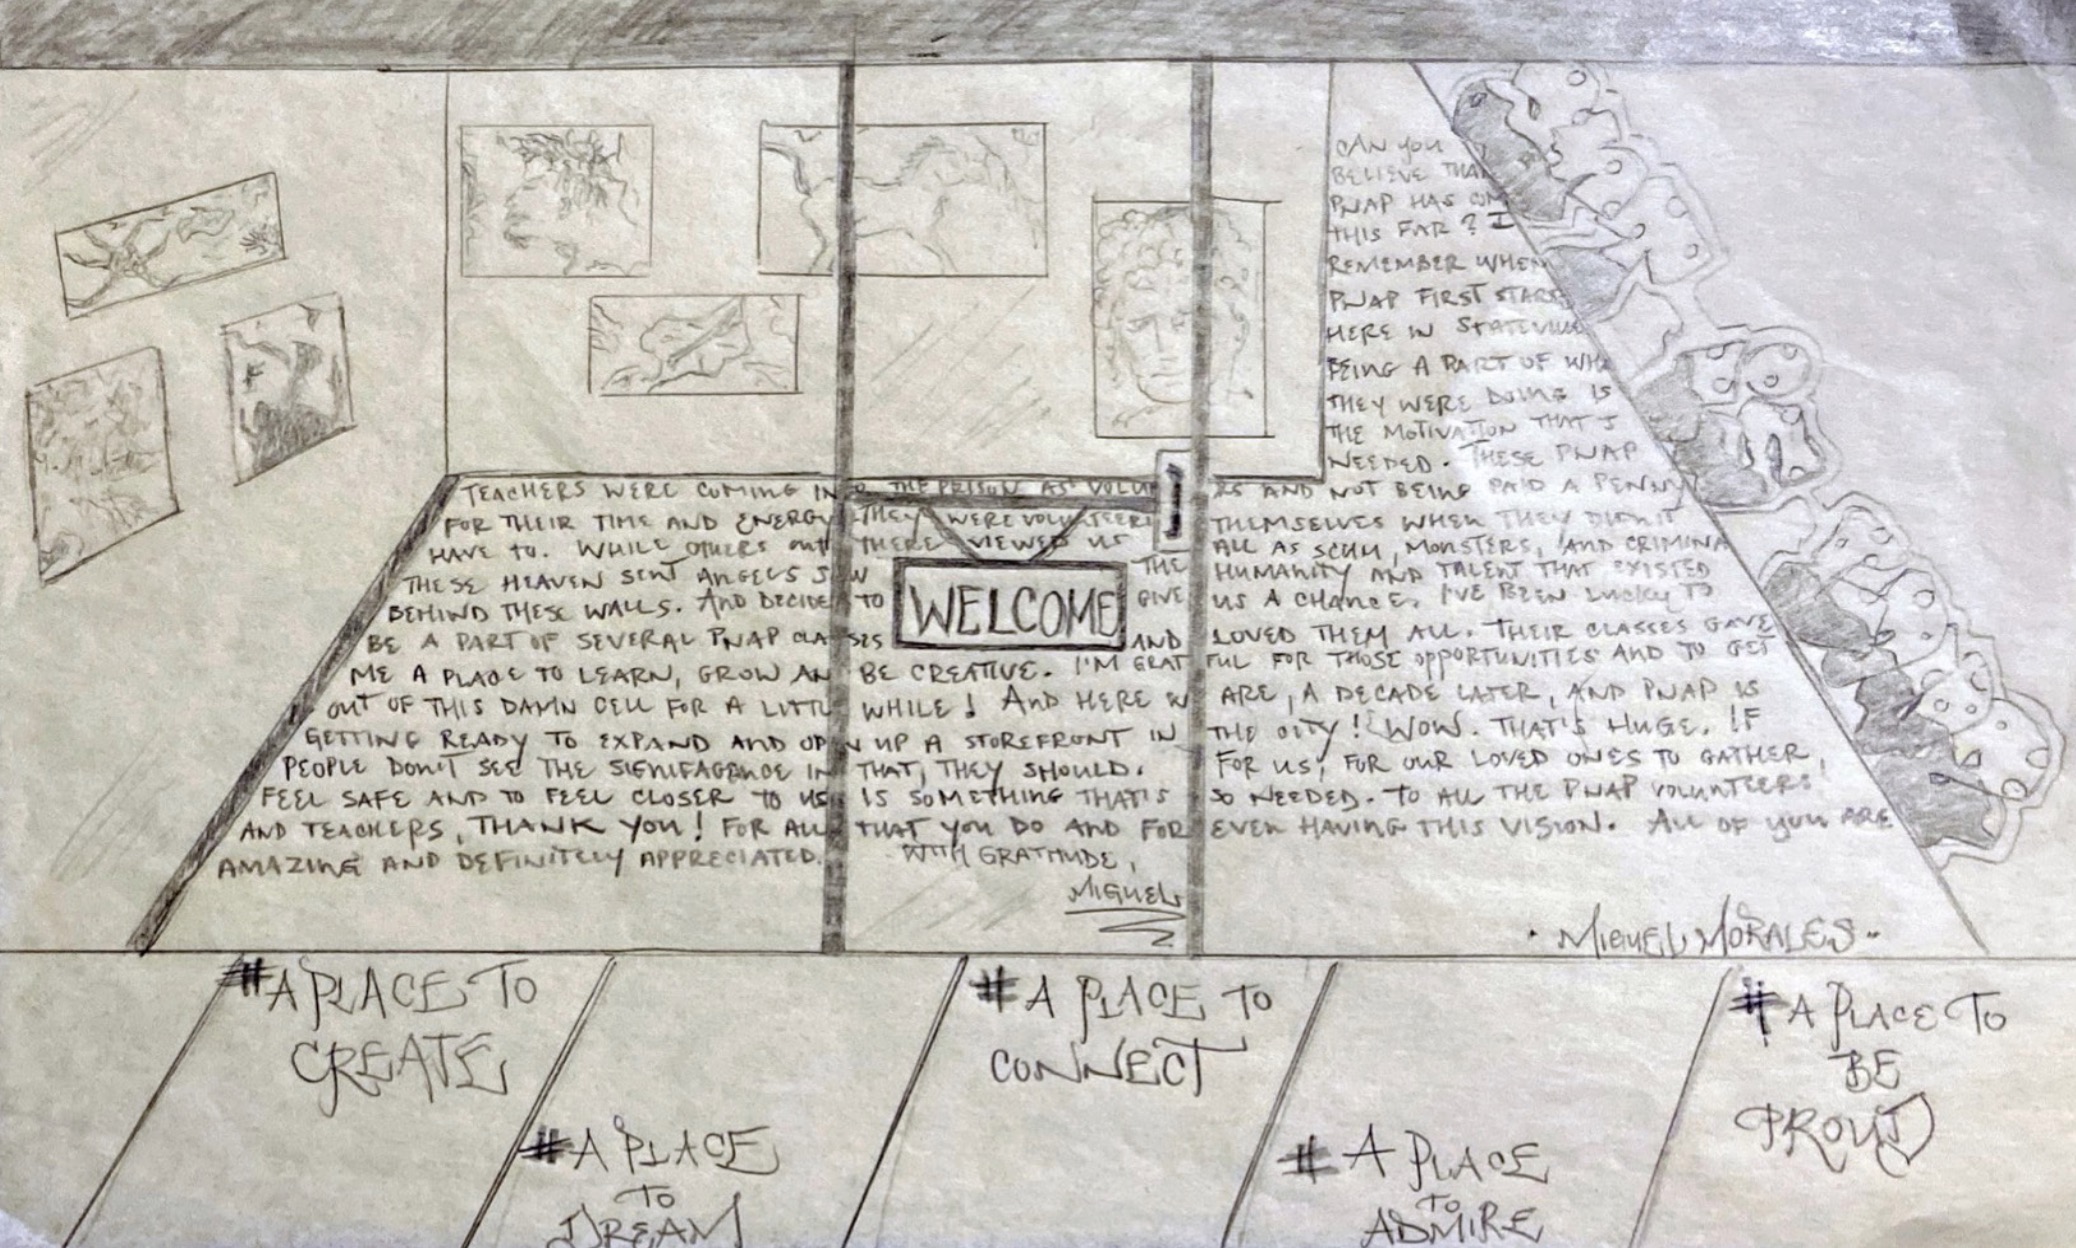 CAN YOU
BELIEVE THA
PNAP HAS COM
THIS FAR? I
REMEMBER WHEN
PNAP FIRST START
HERE IN STATEVILLE
BEING A PART OF WHA
THEY WERE DOING IS
THE MOTIVATION THAT I
NEEDED. THESE PNAP
TEACHERS WERE COMING INTO THE PRISON AS VOLUN RS AND NOT BEING PAID A PENNY
FOR THEIR TIME AND ENERGY THEY WERE VOLUNTEERI THEMSELVES WHEN THEY DIDN'T
HAVE TO. WHILE OTHERS OUT THERE VIEWED US ALL AS SCUM, MONSTERS, AND CRIMINA
THESE HEAVEN SENT ANGELS SAW THE HUMANITY AND TALENT THAT EXISTED
BEHIND THESE WALLS. AND DECIDED TO GIVE US A CHANCE. I'VE BEEN LUCKY TO
BE A PART OF SEVERAL PNAP CLASSES AND LOVED THEM ALL. THEIR CLASSES GAVE
ME A PLACE TO LEARN, GROW AN BE CREATIVE. I'M GRATEFUL FOR THOSE OPPORTUNITIES AND TO GET
OUT OF THIS DAMN CELL FOR A LITTLE WHILE! AND HERE WE ARE, A DECADE LATER, AND PNAP IS
GETTING READY TO EXPAND AND OPEN UP A STOREFRONT IN THE CITY! WOW. THAT'S HUGE. IF
PEOPLE DON'T SEE THE SIGNIFAGANCE IN THAT, THEY SHOULD. FOR US, FOR OUR LOVED ONES TO GATHER,
FEEL SAFE AND TO FEEL CLOSER TO US IS SOMETHING THAT'S SO NEEDED. TO ALL THE PNAP VOLUNTEERS
AND TEACHERS, THANK YOU! FOR ALL THAT YOU DO AND FOR EVEN HAVING THIS VISION. ALL OF YOU ARE
AMAZING AND DEFINITELY APPRECIATED. WITH GRATITUDE,
MIGUEL
WELCOME
· MIGUEL MORALES ·
#A PLACE TO
CREATE
#A PLACE
TO
DREAM
#A PLACE TO
CONNECT
#A PLACE
TO
ADMIRE
#A PLACE TO
BE
PROUD